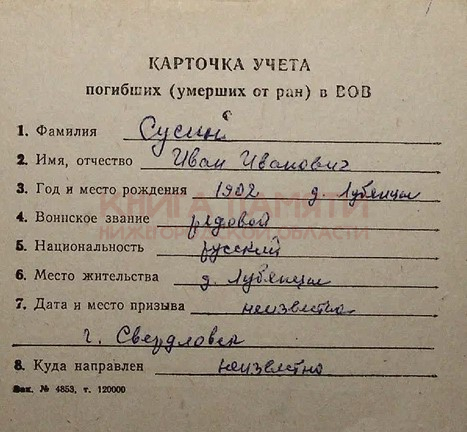 КАРТОЧКА УЧЕТА
погибших (умерших от ран) в ВОВ
1. Фамилия Сусин
2. Имя, отчество Иван Иванович
3. Год и место рождения 1902 д. Лубянцы
КНИГА ПАМЯТИ
4. Воинское звание рядовой
НИЖЕГОРОДСКОЙ ОБЛАСТИ
5. Национальность русский
6. Место жительства д. Лубянцы
7. Дата и место призыва неизвестно
г. Свердловск
8. Куда направлен неизвестно
Зак. № 4853, т. 120000